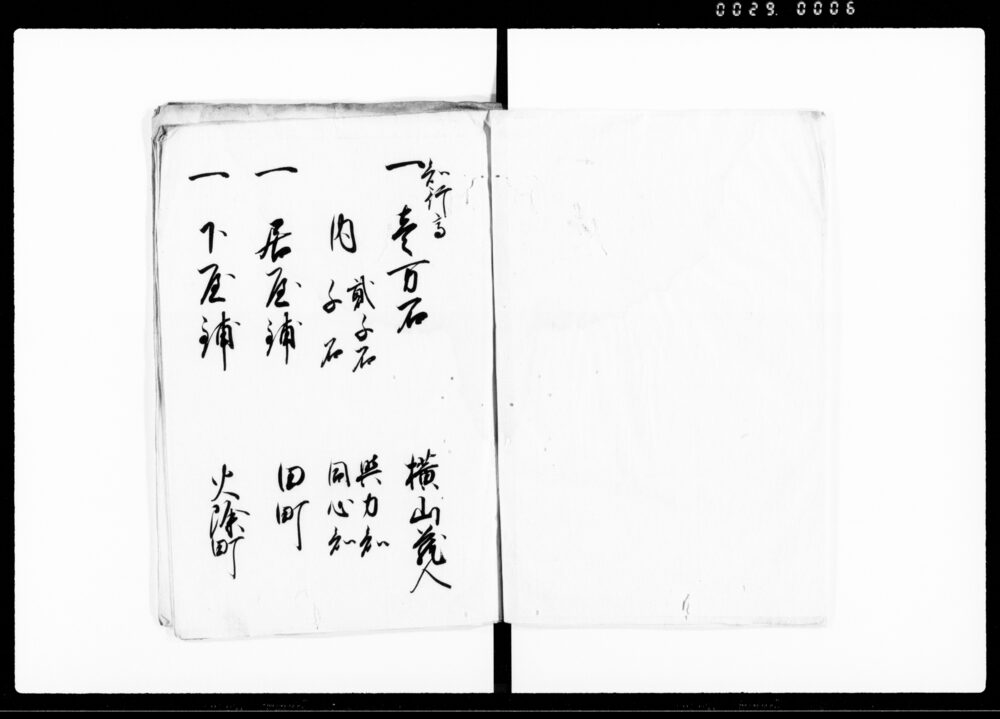 0029.0006
知行高
一 壱万石 横山蔵人
内 貳千石 與力知
千石 同心知
一 居屋鋪 田町
一 下屋鋪 火除町